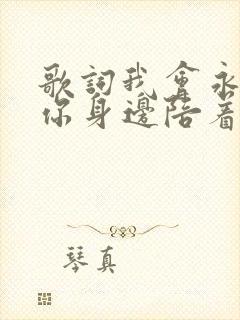 歌詞我會永
你身邊陪着
琴真